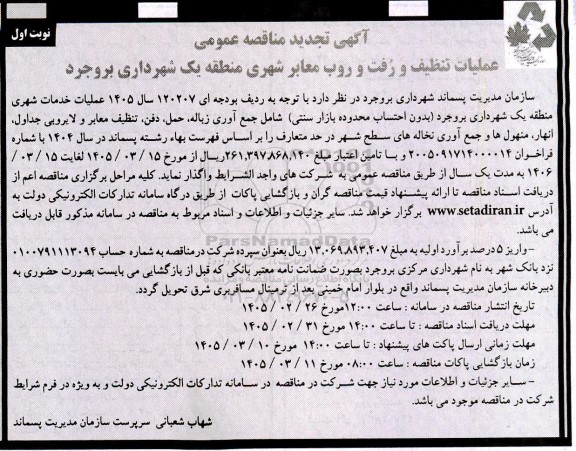 نوبت اول
آگهی تجدید مناقصه عمومی
عملیات تنظیف و رُفت و روب معابر شهری منطقه یک شهرداری بروجرد
سازمان مدیریت پسماند شهرداری بروجرد در نظر دارد با توجه به ردیف بودجه ای ۱۲۰۲۰۷ سال ۱۴۰۵ عملیات خدمات شهری
منطقه یک شهرداری بروجرد (بدون احتساب محدوده بازار سنتی) شامل جمع آوری زباله، حمل، دفن، تنظیف معابر و لایروبی جداول،
انهار، منهول ها و جمع آوری نخاله های سطح شهر در حد متعارف را بر اساس فهرست بهاء رشته پسماند در سال ۱۴۰۴ با شماره
فراخوان ۲۰۰۵۰۹۱۷۱۴۰۰۰۰۱۴ و با تامین اعتبار مبلغ ۲۶۱,۳۹۷,۸۶۸,۱۴۰ ریال از مورخ ۱۵ / ۰۳ / ۱۴۰۵ لغایت ۱۵ / ۰۳ /
۱۴۰۶ به مدت یک سال از طریق مناقصه عمومی به شرکت های واجد الشرایط واگذار نماید. کلیه مراحل برگزاری مناقصه اعم از
دریافت اسناد مناقصه تا ارائه پیشنهاد قیمت مناقصه گران و بازگشایی پاکات از طریق درگاه سامانه تدارکات الکترونیکی دولت به
آدرس www.setadiran.ir برگزار خواهد شد. سایر جزئیات و اطلاعات و اسناد مربوط به مناقصه در سامانه مذکور قابل دریافت
می باشد.
- واریز ۵ درصد برآورد اولیه به مبلغ ۱۳,۰۶۹,۸۹۳,۴۰۷ ریال بعنوان سپرده شرکت در مناقصه به شماره حساب ۰۱۰۰۷۹۱۱۱۳۰۹۴
نزد بانک شهر به نام شهرداری مرکزی بروجرد بصورت ضمانت نامه معتبر بانکی که قبل از بازگشایی می بایست بصورت حضوری به
دبیرخانه سازمان مدیریت پسماند واقع در بلوار امام خمینی بعد از ترمینال مسافربری شرق تحویل گردد.
تاریخ انتشار مناقصه در سامانه : ساعت ۱۲:۰۰ مورخ ۲۶ / ۰۲ / ۱۴۰۵
مهلت دریافت اسناد مناقصه : تا ساعت ۱۴:۰۰ مورخ ۳۱ / ۰۲ / ۱۴۰۵
مهلت زمانی ارسال پاکت های پیشنهاد : تا ساعت ۱۴:۰۰ مورخ ۱۰ / ۰۳ / ۱۴۰۵
زمان بازگشایی پاکات مناقصه : ساعت ۰۸:۰۰ مورخ ۱۱ / ۰۳ / ۱۴۰۵
- سایر جزئیات و اطلاعات مورد نیاز جهت شرکت در مناقصه در سامانه تدارکات الکترونیکی دولت و به ویژه در فرم شرایط
شرکت در مناقصه موجود می باشد.
شهاب شعبانی سرپرست سازمان مدیریت پسماند